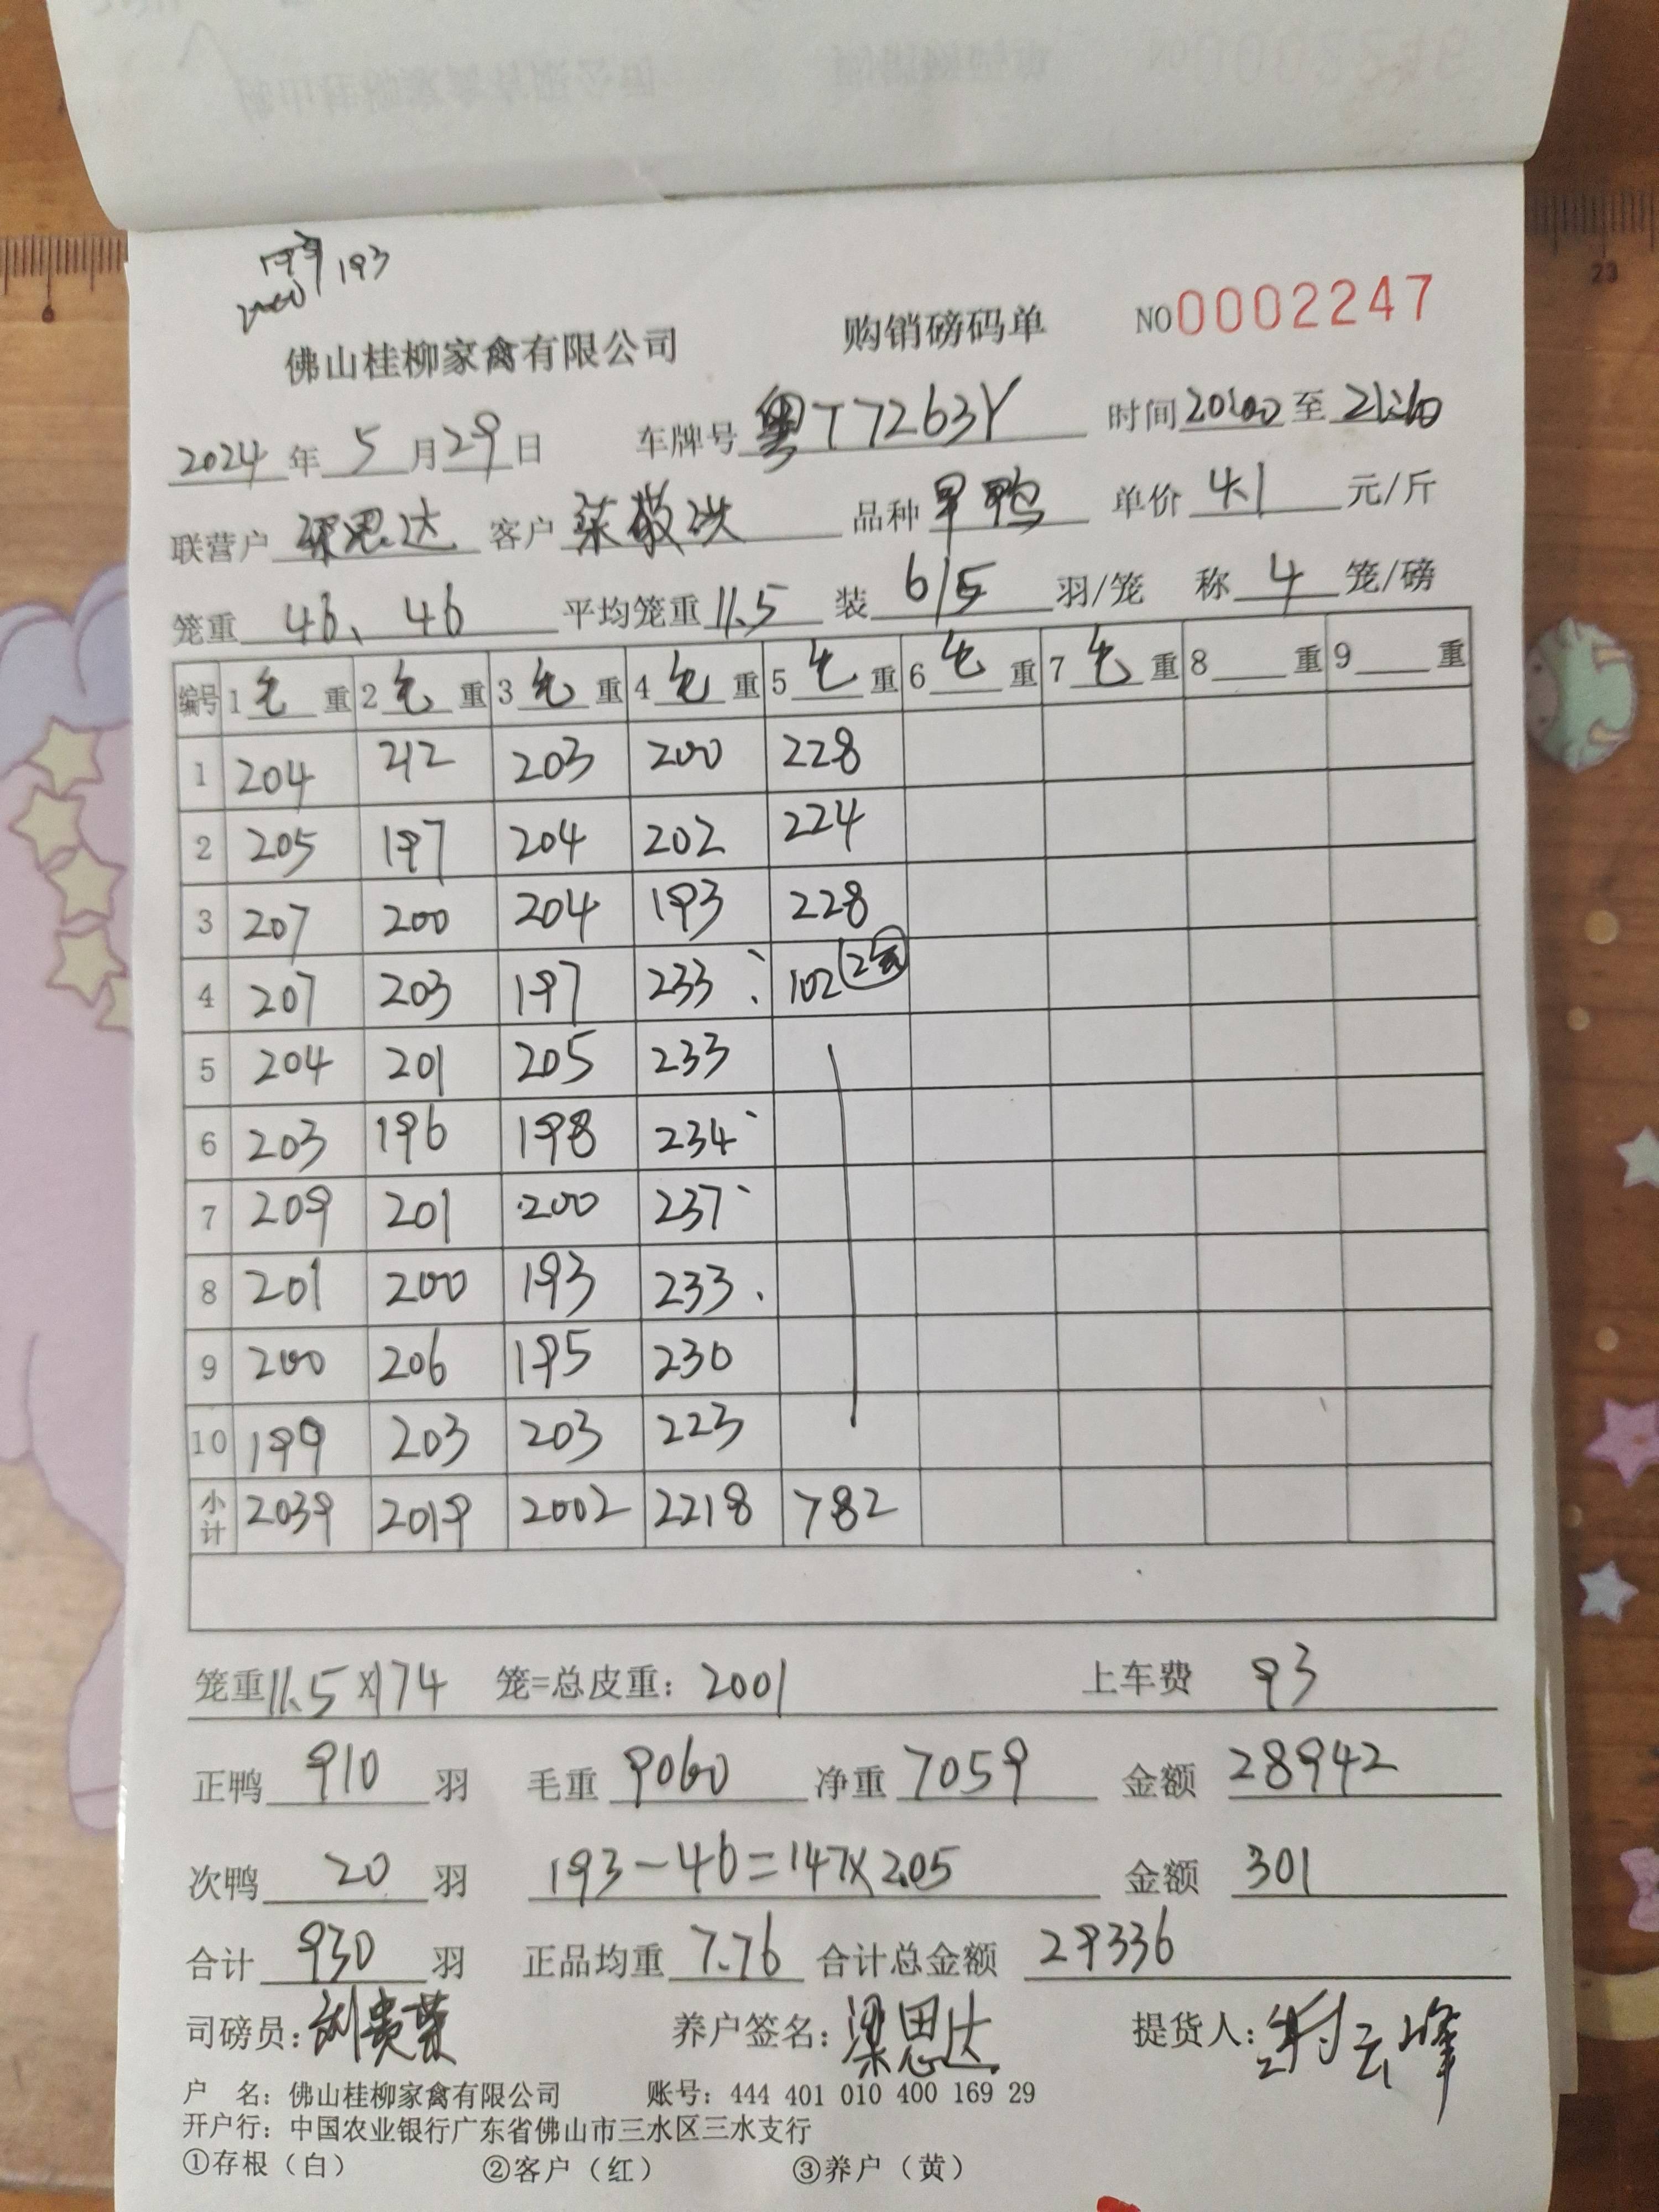 193
佛山桂柳家禽有限公司 购销磅码单 NO0002247
2024年5月29日 车牌号粤T7263Y 时间20:00至21:40
联营户 梁思达 客户 品种 单价 4.1 元/斤
笼重 46、46 平均笼重11.5 装 6/5 羽/笼 称 4 笼/磅
编号 1毛重 2毛重 3毛重 4毛重 5毛重 6毛重 7毛重 8 重 9 重
1 204 212 203 200 228
2 205 197 204 202 224
3 207 200 204 193 228
4 207 203 197 233 102
5 204 201 205 233
6 203 196 198 234
7 209 201 200 237
8 201 200 193 233
9 200 206 195 230
10 199 203 203 223
小计 2039 2019 2002 2218 782
笼重11.5×174 笼=总皮重：2001 上车费 93
正鸭 910 羽 毛重 9060 净重 7059 金额 28942
次鸭 20 羽 193-46=147×2.05 金额 301
合计 930 羽 正品均重 7.76 合计总金额 29336
司磅员：刘贵荣 养户签名：梁思达 提货人：
户 名：佛山桂柳家禽有限公司 账号：444 401 010 400 169 29
开户行：中国农业银行广东省佛山市三水区三水支行
①存根（白） ②客户（红） ③养户（黄）